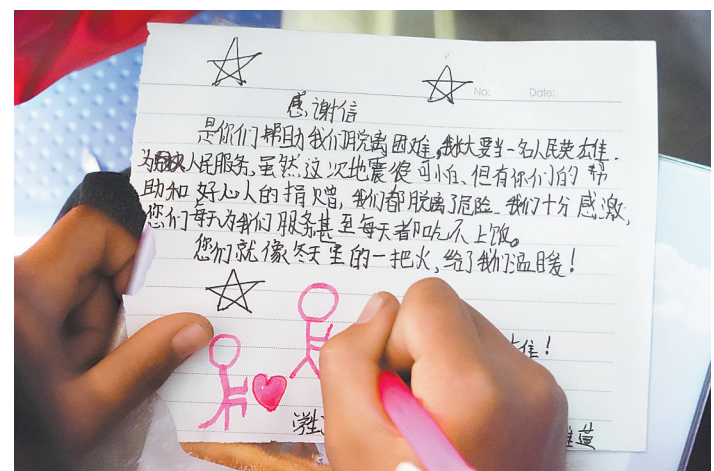 No:
Date:
感谢信
是你们帮助我们脱离困难,我长大要当一名人民英雄.
为人民服务.虽然这次地震很可怕、但有你们的帮
助和好心人的捐赠,我们都脱离了危险.我们十分感激,
您们每天为我们服务甚至每天都吃不上饭。
您们就像冬天里的一把火,给了我们温暖!
雄!
学生